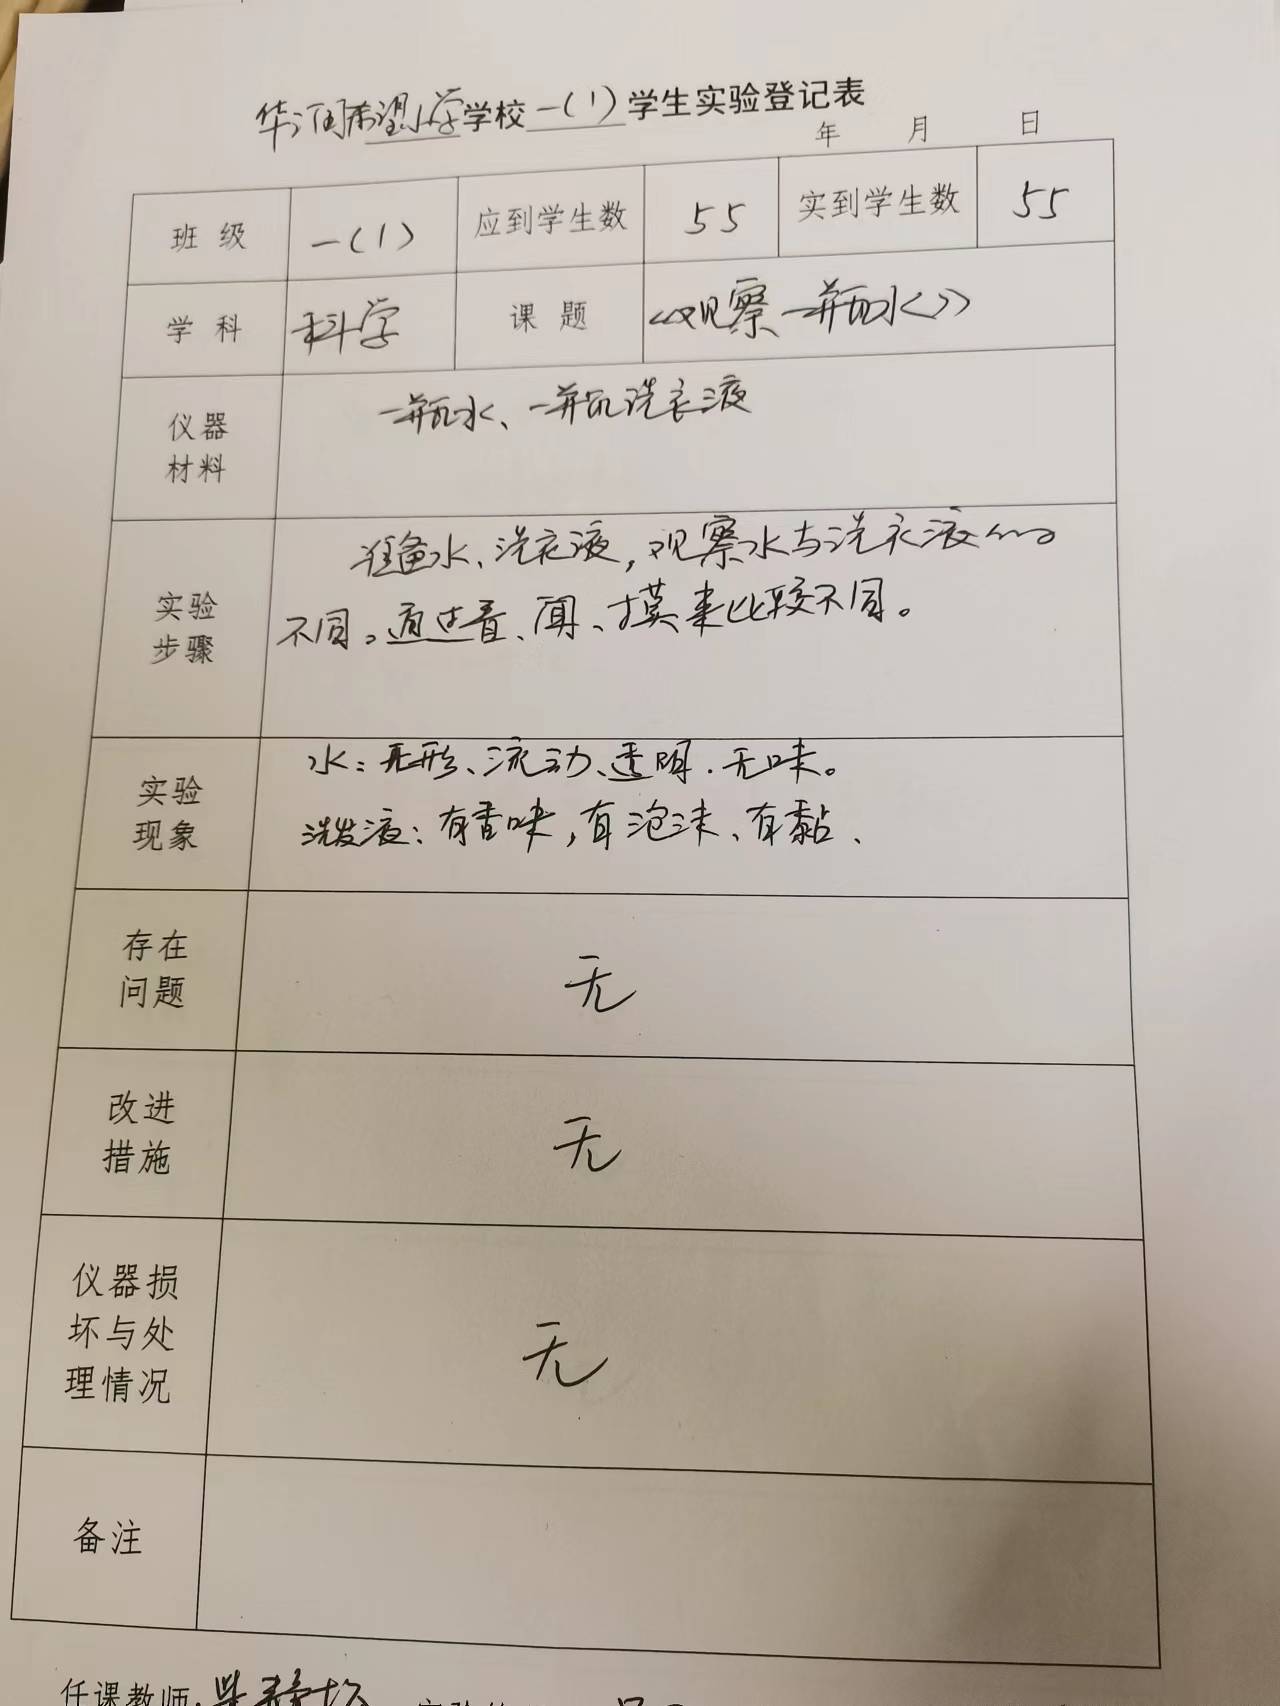 华润希望小学学校一(1)学生实验登记表
年 月 日
班 级 一(1) 应到学生数 55 实到学生数 55
学 科 科学 课 题 《观察一瓶水》
仪器
材料
一瓶水、一瓶洗衣液
实验
步骤
准备水、洗衣液,观察水与洗衣液的
不同。通过看、闻、摸来比较不同。
实验
现象
水:无形、流动、透明.无味。
洗发液:有香味,有泡沫、有黏、
存在
问题
无
改进
措施
无
仪器损
坏与处
理情况
无
备注
任课教师: